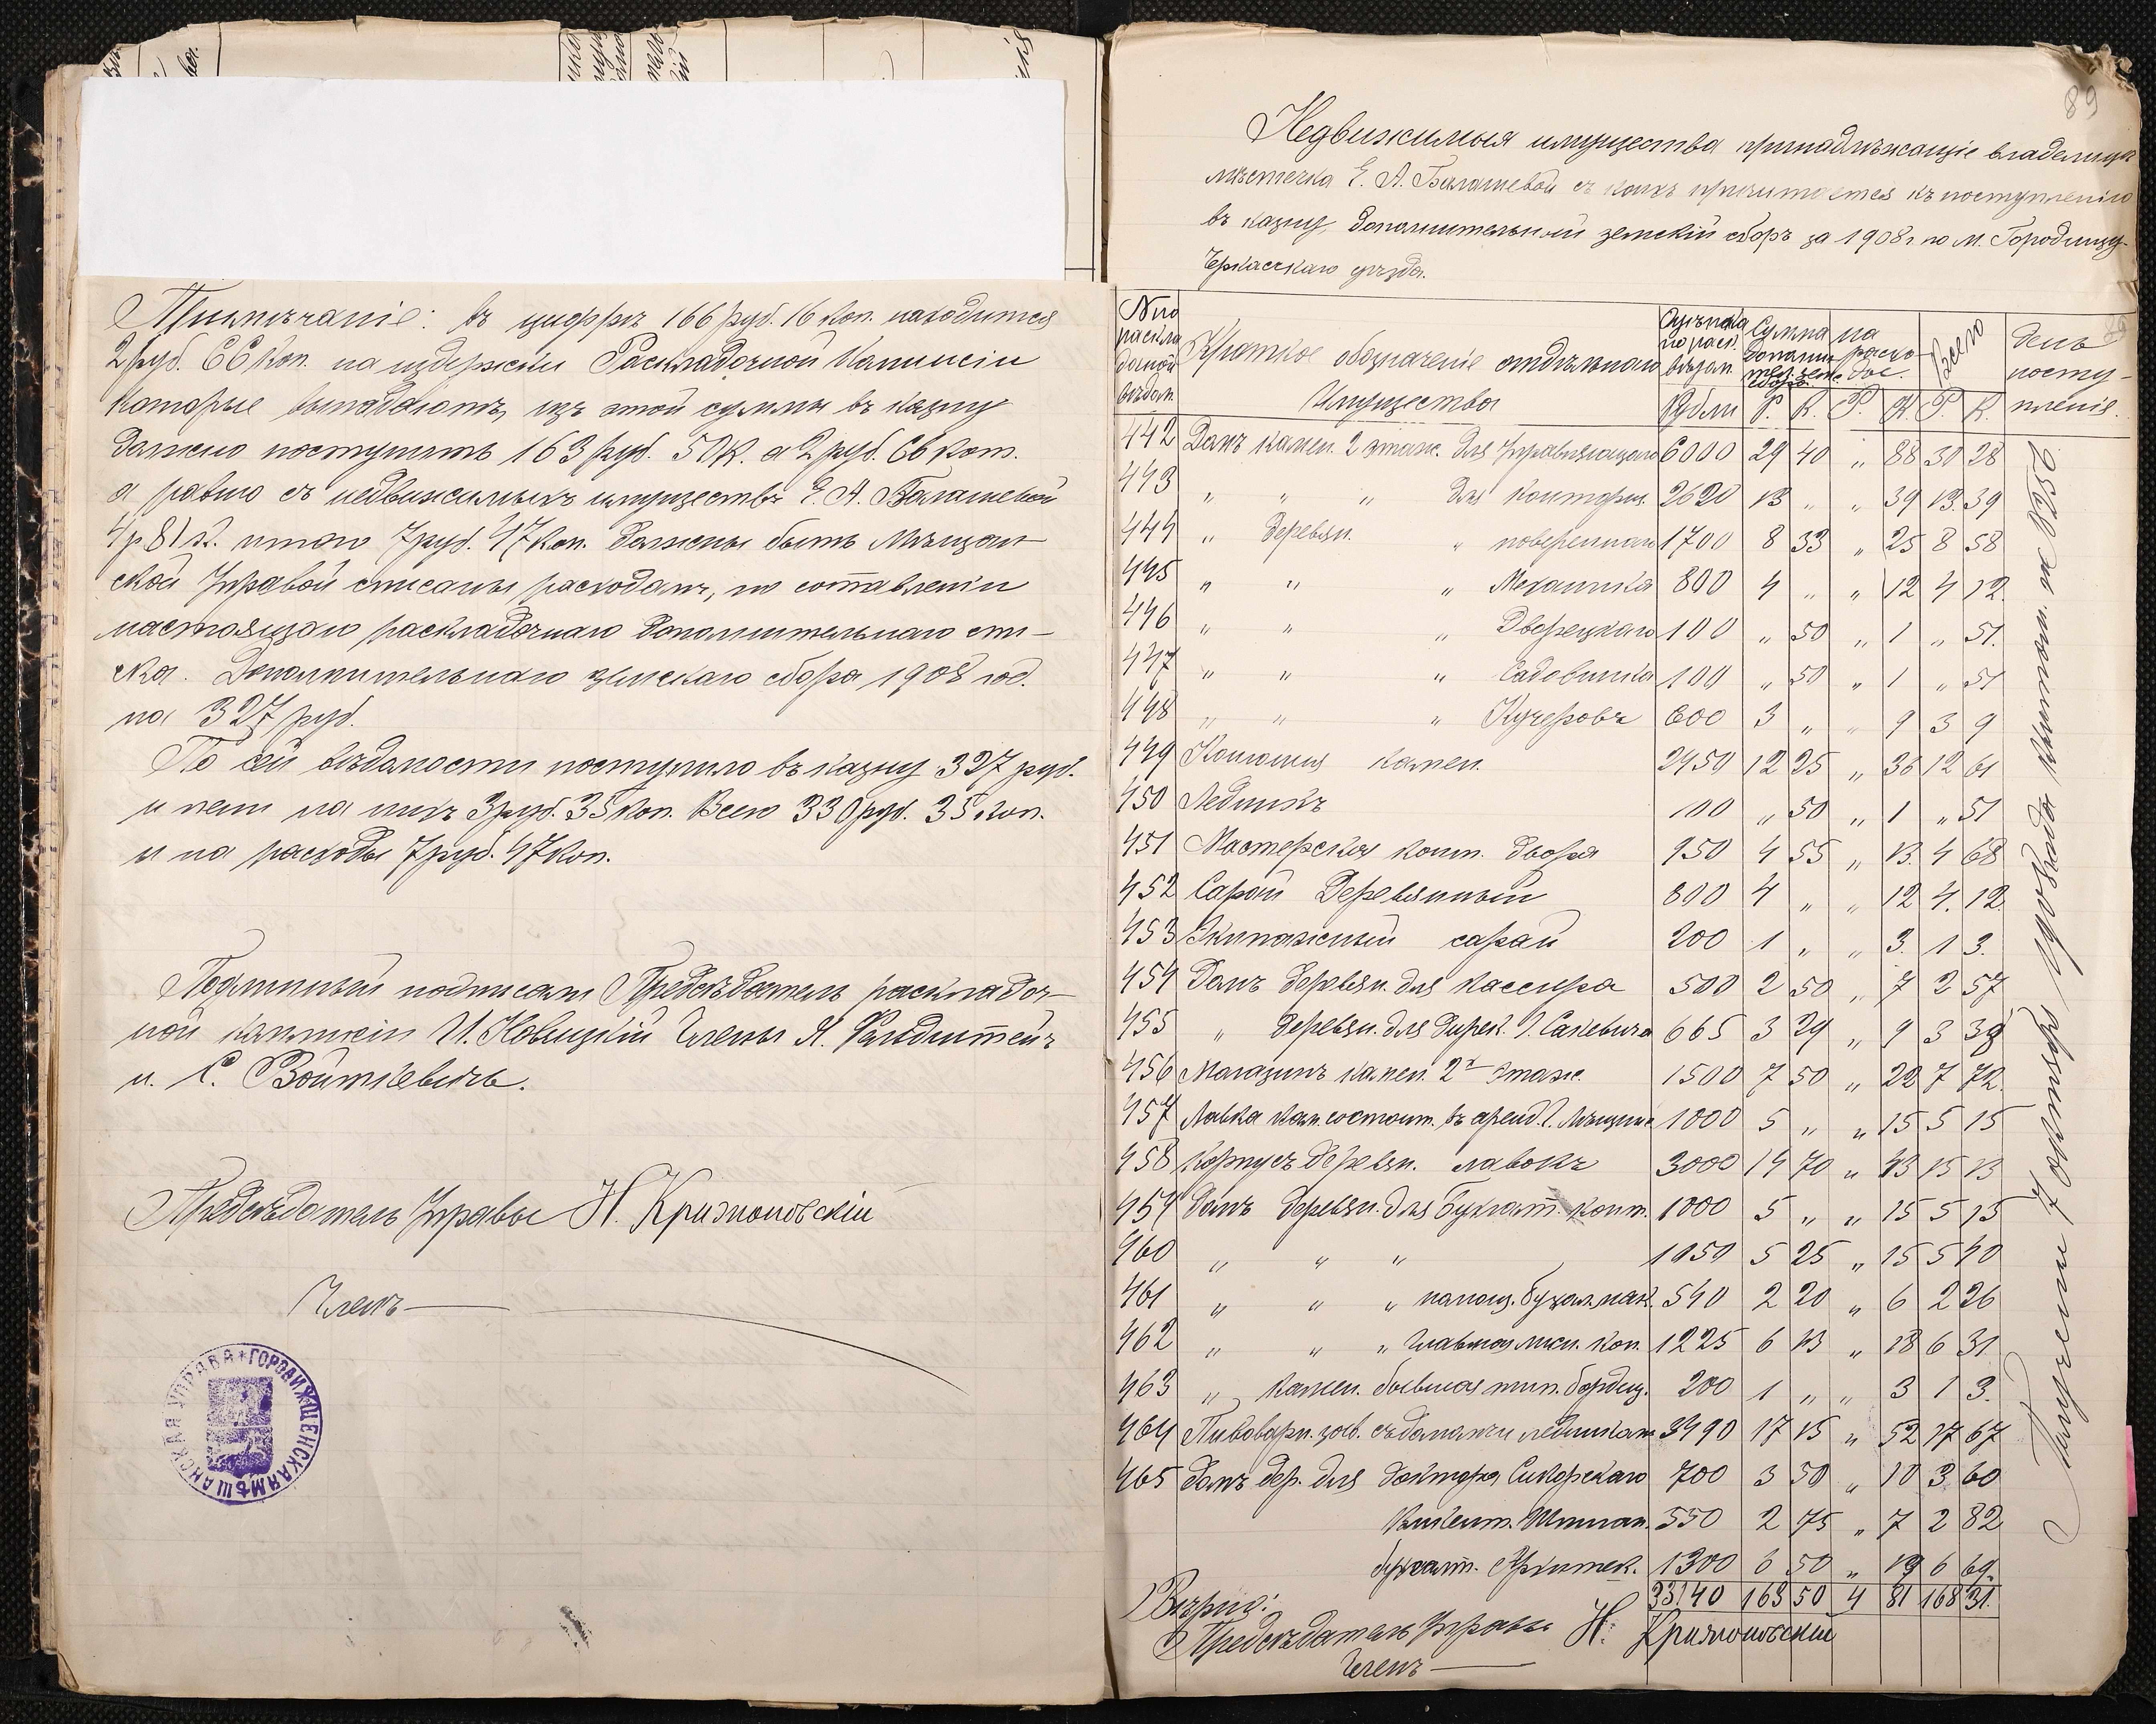 Примѣчаніе: въ цифрѣ 166 руб. 16 коп. находится
2 руб. 66 коп. на издержки Раскладочной Каммисіи
которые выпадаютъ, изъ этой суммы въ казну
должно поступить 163 руб. 50 к. а 2 руб. 66 коп.
а равно съ недвижимыхъ имуществъ Е. А. Балашевой
4 р 81 к. итого 7 руб. 47 коп. должны быть Мѣщан-
ской Управой списаны расходомъ, по составленіи
настоящаго раскладочнаго дополнительнаго спи-
ска. Дополнительнаго земскаго сбора 1908 год.
на 327 руб.
По сей вѣдомости поступило въ казну 327 руб.
и пени на нихъ 3 руб. 35 коп. Всего 330 руб. 35 коп.
и на расходы 7 руб. 47 коп.
Подлинный подписали Предсѣдатель раскладоч-
ной каммисіи И. Новицкій Члены Я. Гольдштейнъ
и. С. Войткевичъ.
Предсѣдатель Управы Н. Крижановскій
Членъ
ГОРОДИЖЩЕНСКАЯ МѢЩАНСКАЯ УПРАВА
89
Недвижимыя имущества принадлѣжащіе владѣлицѣ
мѣстечка Е. А. Балашевой съ коихъ причитается къ поступленію
въ казну дополнительный земскій сборъ за 1908 г. по М. Городищу
Черкасскаго уѣзда.
№ по раскладочной вѣдом. Краткое обозначеніе отдѣльнаго Имущества Оцѣнка по раск. вѣдом. Рубли Сумма дополнител. зем. сбора Р. К. на расходы. Р. К. Всего Р. К. День поступленія.
442 Домъ камен. 2 этаж. для Управляющаго 6000 29 40 „ 88 30 28
443 „ „ „ для конторы. 2620 13 „ „ 39 13. 39
444 „ деревян. „ повереннаго 1700 8 33 „ 25 8 58
445 „ „ „ Механика 800 4 „ „ 12 4 12.
446 „ „ „ Дворецкаго 100 „ 50 „ 1 „ 51.
447 „ „ „ Садовника 100 „ 50 „ 1 „ 51
448 „ „ „ Кучеровъ 600 3 „ „ 9 3 9
449 Конюшня камен. 2450 12 25 „ 36 12 61
450 Ледникъ 100 „ 50 „ 1 „ 51
451 Мастерская конт. двора 950 4 55 „ 13. 4 68
452 Сарай Деревянный 800 4 „ „ 12 4. 12.
453 Экипажный сарай 200 1 „ „ 3. 1 3.
454 Домъ деревян. для кассира 500 2 50 „ 7 2 57
455 „ деревян. для дирек. Сакевича 665 3 29 „ 9 3 38
456 Магазинъ камен. 2х этаж. 1500 7 50 „ 22 7 72.
457 Лавка кам. состоит. въ аренд. 1000 5 „ „ 15 5 15
458 Корпусъ деревян. лавокъ 3000 14 70 „ 43 15 13
459 Домъ деревян. для бухгалт. конт. 1000 5 „ „ 15 5 15
460 „ „ „ 1050 5 25 „ 15 5 40
461 „ „ „ 540 2 20 „ 6 2 26
462 „ „ „ 1225 6 13 „ 18 6 31
463 „ Камен. бывшая 200 1 „ „ 3 1 3.
464 Пивоварн. зав. съ домами и ледникам 3490 17 15 „ 52 17 67
465 Домъ дер. для доктора Сикорскаго 700 3 50 „ 10 3 60
550 2 75 „ 7 2 82
бухгалт. 1300 6 50 „ 19 6 69.
33140 163 50 4 81 168 31.
Вѣрно:
Предсѣдатель Управы Н. Крижановскій
Членъ
Получены 7 октября